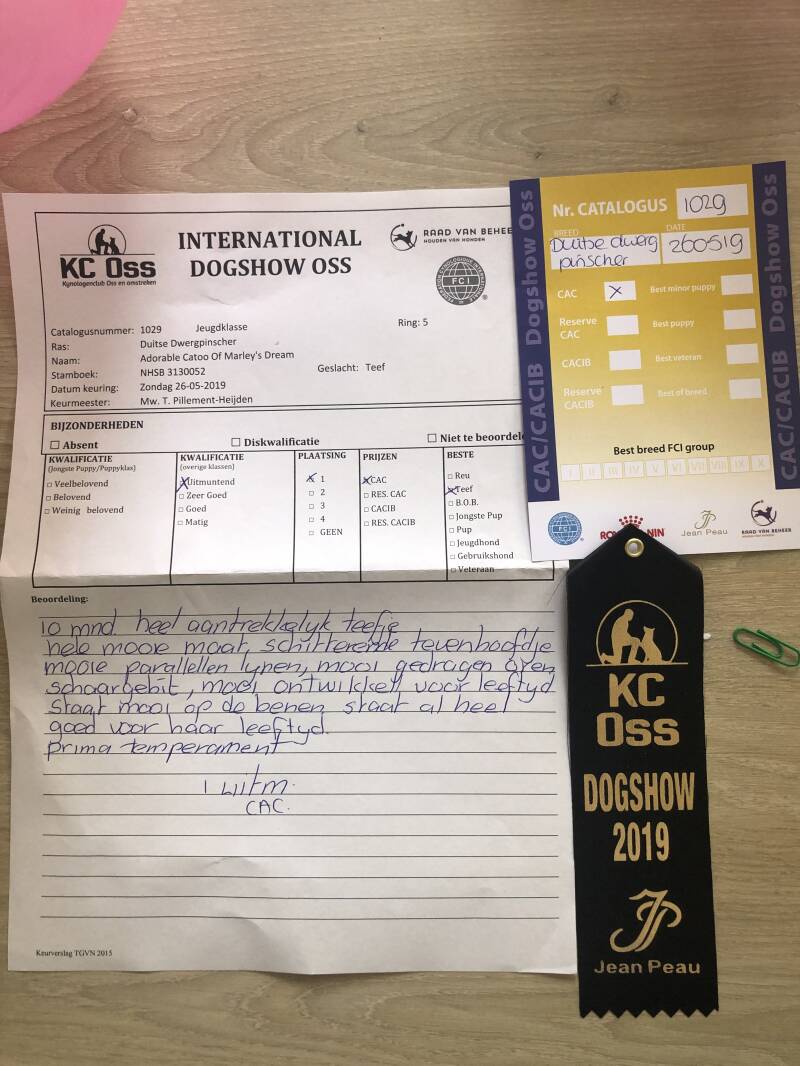 KC Oss
Kynologenclub Oss en omstreken
INTERNATIONAL
DOGSHOW OSS
RAAD VAN BEHEE
HOUDEN VAN HONDEN
FCI
Catalogusnummer: 1029 Jeugdklasse Ring: 5
Ras: Duitse Dwergpinscher
Naam: Adorable Catoo Of Marley's Dream
Stamboek: NHSB 3130052 Geslacht: Teef
Datum keuring: Zondag 26-05-2019
Keurmeester: Mw. T. Pillement-Heijden
BIJZONDERHEDEN
☐ Absent ☐ Diskwalificatie ☐ Niet te beoordele
KWALIFICATIE
(Jongste Puppy/Puppyklas)
☐ Veelbelovend
☐ Belovend
☐ Weinig belovend
KWALIFICATIE
(overige klassen)
X Uitmuntend
☐ Zeer Goed
☐ Goed
☐ Matig
PLAATSING
X 1
☐ 2
☐ 3
☐ 4
☐ GEEN
PRIJZEN
X CAC
☐ RES. CAC
☐ CACIB
☐ RES. CACIB
BESTE
☐ Reu
X Teef
☐ B.O.B.
☐ Jongste Pup
☐ Pup
☐ Jeugdhond
☐ Gebruikshond
☐ Veteraan
Beoordeling:
10 mnd. heel aantrekkelyk teefje
hele mooie maat, schitterende tevenhoofdje
mooie parallellen lynen, mooi gedragen oren
schaargebit, mooi ontwikkelt voor leeftyd
staat mooi op de benen, staat al heel
goed voor haar leeftyd.
prima temperament
1 uitm.
CAC.
Keurverslag TGVN 2015
CAC/CACIB Dogshow Oss
Nr. CATALOGUS 1029
BREED
Duitse dwerg
pinscher
DATE
260519
CAC X Best minor puppy
Reserve
CAC
Best puppy
CACIB Best veteran
Reserve
CACIB
Best of breed
Best breed FCI group
I II III IV V VI VII VIII IX X
FCI
Jean Peau
RAAD VAN BEHEER
CAC/CACIB Dogshow Oss
KC
Oss
DOGSHOW
2019
JP
Jean Peau